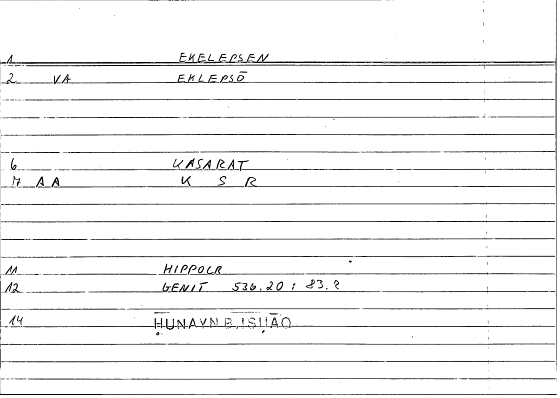 1 EKELEPSEN
2 VA EKLEPSŌ
6 KASARAT
7 AA K S R
11 HIPPOCR
12 GENIT 536.20 : 83.2
14